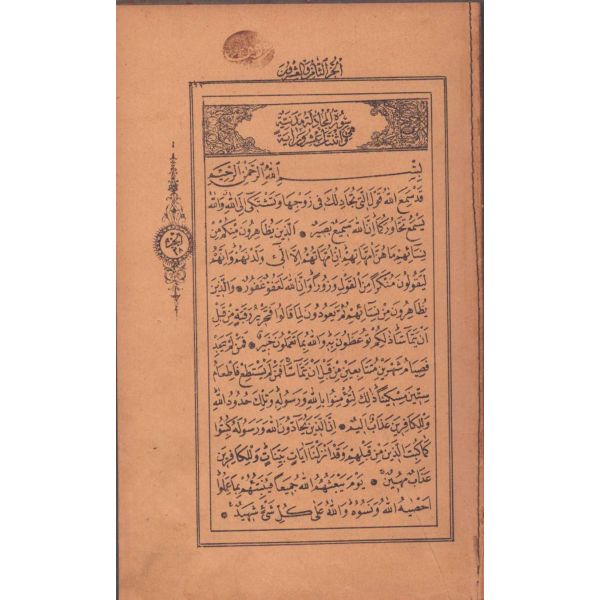 الجزء الثامن والعشرون
سورة المجادلة مدنية
وهى اثنتان وعشرون اية
بِسْمِ اللهِ الرَّحْمٰنِ الرَّحِيمِ
قَدْ سَمِعَ اللهُ قَوْلَ الَّتِى تُجَادِلُكَ فِى زَوْجِهَا وَتَشْتَكِى اِلَى اللهِ وَاللهُ
يَسْمَعُ تَحَاوُرَكُمَا اِنَّ اللهَ سَمِيعٌ بَصِيرٌ ۞ اَلَّذِينَ يُظَاهِرُونَ مِنْكُمْ مِنْ
نِسَائِهِمْ مَا هُنَّ اُمَّهَاتِهِمْ اِنْ اُمَّهَاتُهُمْ اِلَّا الّٰئِ وَلَدْنَهُمْ وَاِنَّهُمْ
لَيَقُولُونَ مُنْكَرًا مِنَ الْقَوْلِ وَزُورًا وَاِنَّ اللهَ لَعَفُوٌّ غَفُورٌ ۞ وَالَّذِينَ
يُظَاهِرُونَ مِنْ نِسَائِهِمْ ثُمَّ يَعُودُونَ لِمَا قَالُوا فَتَحْرِيرُ رَقَبَةٍ مِنْ قَبْلِ
اَنْ يَتَمَاسَّا ذٰلِكُمْ تُوعَظُونَ بِهِ وَاللهُ بِمَا تَعْمَلُونَ خَبِيرٌ ۞ فَمَنْ لَمْ يَجِدْ
فَصِيَامُ شَهْرَيْنِ مُتَتَابِعَيْنِ مِنْ قَبْلِ اَنْ يَتَمَاسَّا فَمَنْ لَمْ يَسْتَطِعْ فَاِطْعَامُ
سِتِّينَ مِسْكِينًا ذٰلِكَ لِتُؤْمِنُوا بِاللهِ وَرَسُولِهِ وَتِلْكَ حُدُودُ اللهِ
وَلِلْكَافِرِينَ عَذَابٌ اَلِيمٌ ۞ اِنَّ الَّذِينَ يُحَادُّونَ اللهَ وَرَسُولَهُ كُبِتُوا
كَمَا كُبِتَ الَّذِينَ مِنْ قَبْلِهِمْ وَقَدْ اَنْزَلْنَا اٰيَاتٍ بَيِّنَاتٍ وَلِلْكَافِرِينَ
عَذَابٌ مُهِينٌ ۞ يَوْمَ يَبْعَثُهُمُ اللهُ جَمِيعًا فَيُنَبِّئُهُمْ بِمَا عَمِلُوا
اَحْصٰيهُ اللهُ وَنَسُوهُ وَاللهُ عَلٰى كُلِّ شَىْءٍ شَهِيدٌ ۞
الجزء
٢٨